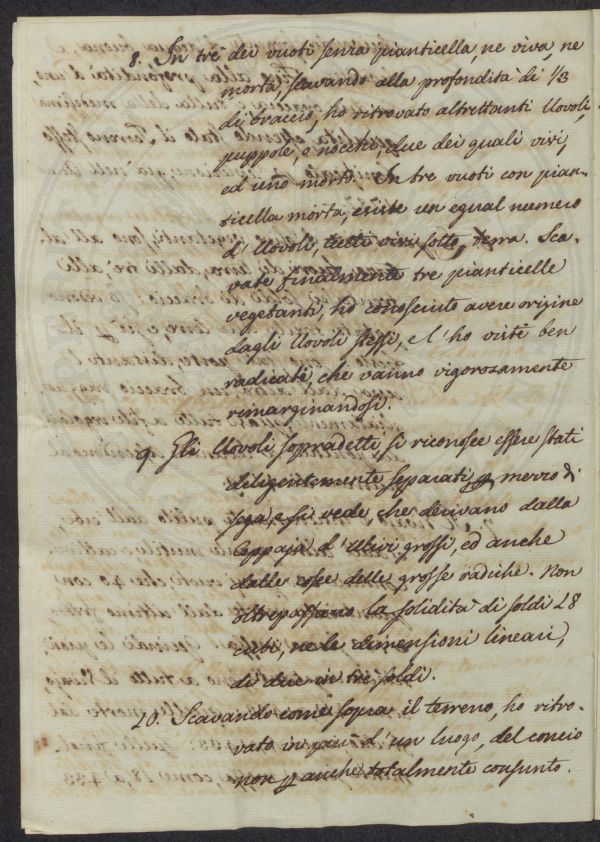 8. In tre dei vuoti senza pianticella, ne viva, ne
morta, scavando alla profondita di 1/3
di braccio, ho ritrovato altrettanti Uovoli,
puppole, o nocchi, due dei quali vivi,
ed uno morto. In tre vuoti con pian-
ticella morta, esiste un egual numero
d'Uovoli, tutti vivi sotto terra. Sca-
vate finalmente tre pianticelle
vegetanti, ho conosciuto avere origine
dagli Uovoli stessi, e l'ho viste ben
radicate, che vanno vigorosamente
rimarginandosi.
9. Gli Uovoli sopradetti si riconosce essere stati
diligentemente separati p mezzo di
sega, e si vede che derivano dalla
Ceppaja d'Ulivi grossi, ed anche
dalle cosce delle grosse radiche. Non
oltrepassano la solidità di soldi 28
cubi, ne le dimensioni lineari,
di due in tre soldi.
10. Scavando come sopra il terreno, ho ritro-
vato in piu d'un luogo, del concio
non p anche totalmente consunto.